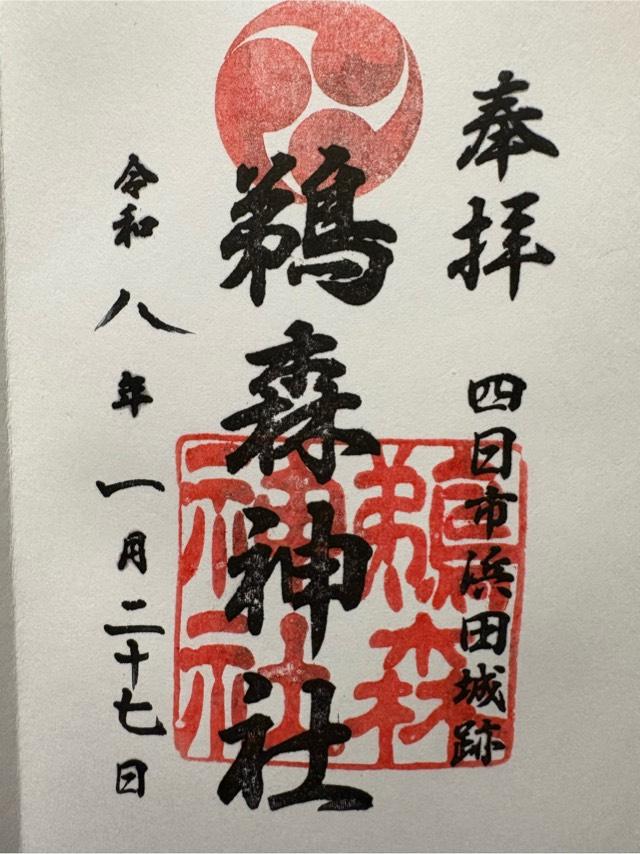 奉拝
四日市浜田城跡
鵜森神社
鵜森
神社
令和八年一月二十七日